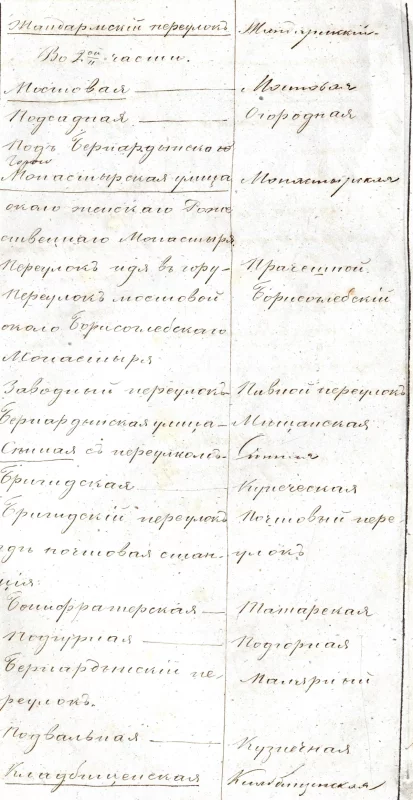 Жандармскій переулокъ Жандармскій.
Во 2ой части.
Мостовая — Мостовая
Подсадная — Огородная
Подъ Бернардынскою
горою
Монастырская улица Монастырская
около женскаго Роже
ственнаго Монастыря
Переулокъ идя въ гору - Прачешной.
Переулокъ мостовой Борисоглебскій
около Борисоглебскаго
Монастыря
Заводный переулокъ - Пивной переулокъ
Бернардынская улица — Мещанская
Сенная съ переулкомъ - Сенная
Бригидская — Купеческая
Бригидскій переулокъ Почтовый пере-
гдѣ почтовая стан- улокъ
ція.
Бонифратерская — Татарская
Подгурная — Подгорная
Бернардынскій пе- Малярный
реулокъ.
Подвальная — Кузнечная
Кладбищенская Кладбищенская